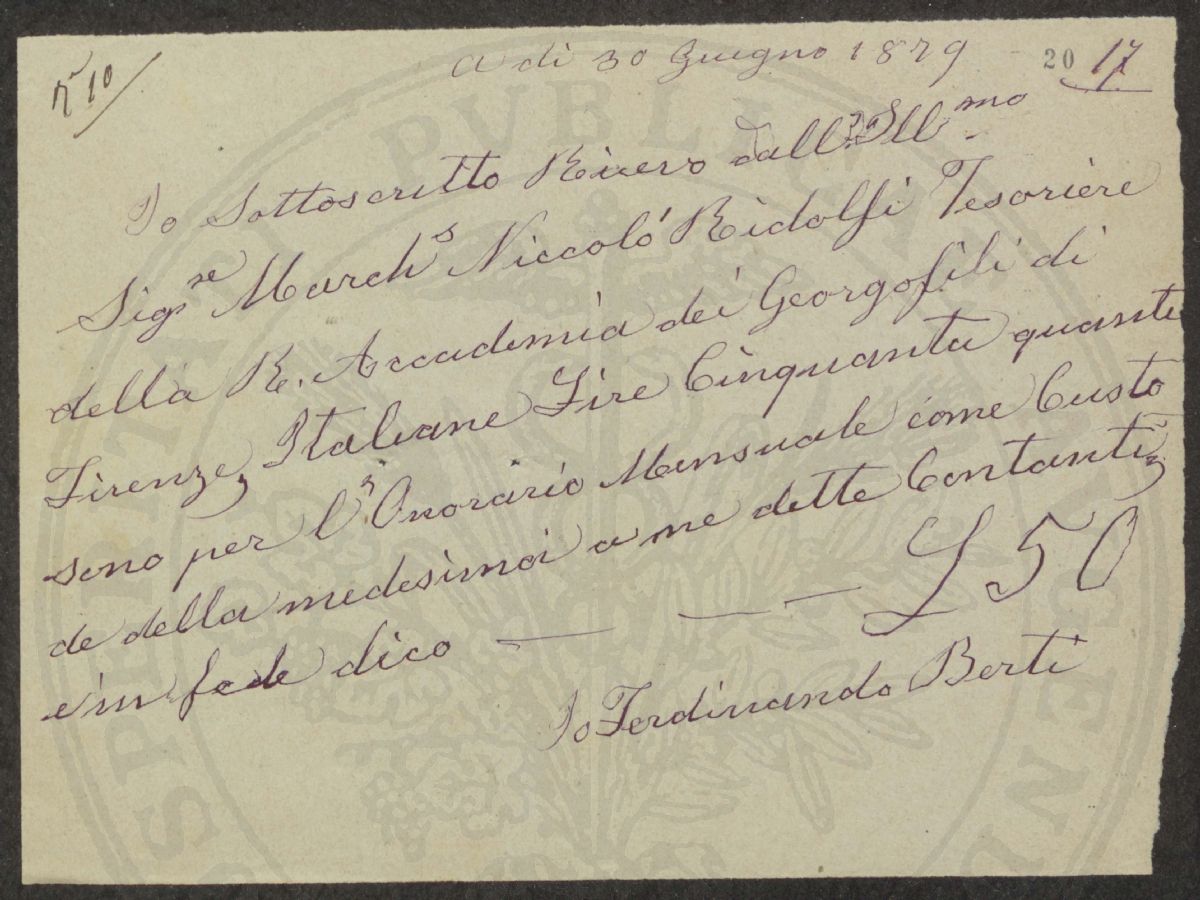 N° 10
a di 30 Giugno 1879
20 17
Io Sottoscritto Ricevo dall'Ill.mo
Sig.re March.s Niccoló Ridolfi Tesoriere
della R. Accademia dei Georgofili di
Firenze, Italiane Lire Cinquanta quante
sono per l'Onorario Mensuale come Custo
de della medesima a me dette Contanti,
e in fede dico — — — L 50
Io Ferdinando Berti
PROSPERITATI PVBLICAE AVGENDAE